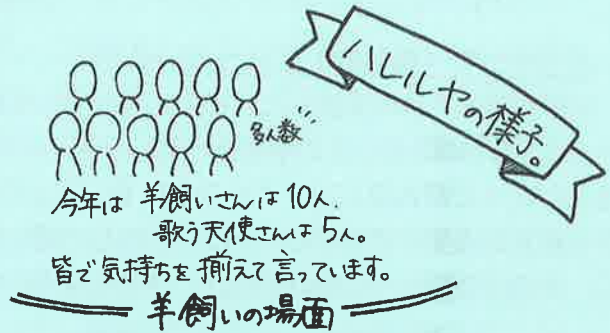 ハレルヤの様子。
多人数
今年は 羊飼いさんは10人、
歌う天使さんは5人。
皆で気持ちを揃えて言っています。
羊飼いの場面